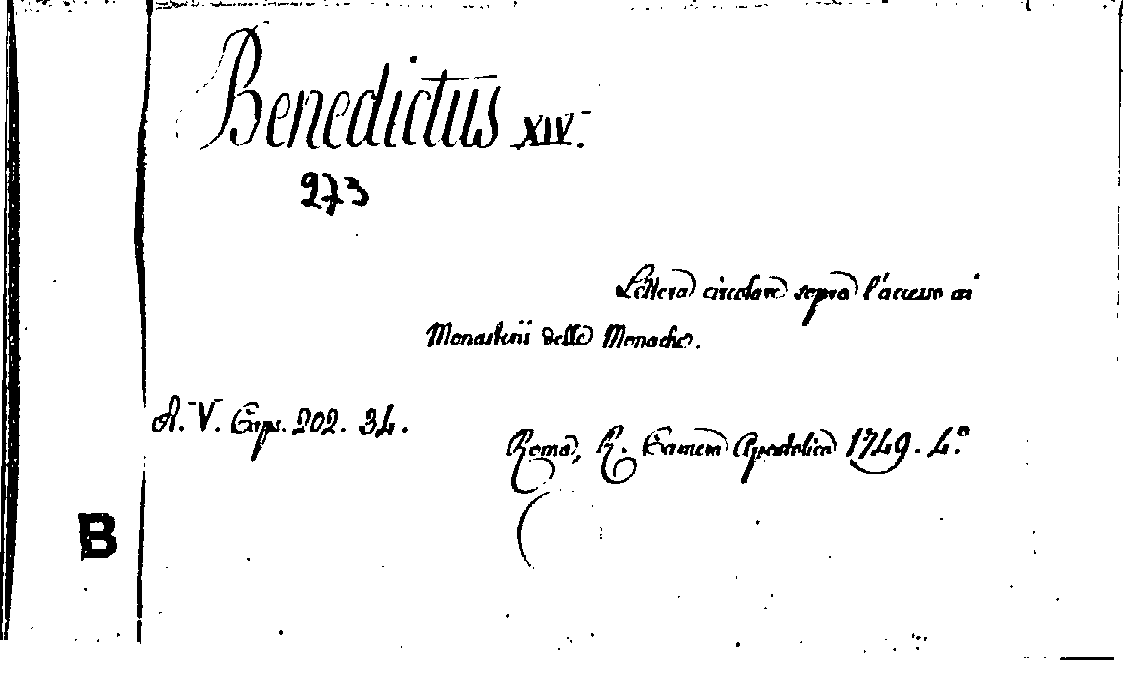 Benedictus XIV.
273
Lettera circolare sopra l'accesso ai
Monasterii delle Monache.
A. V. Caps. 202. 34.
Roma, R. Camera Apostolica 1749. 4.º
B